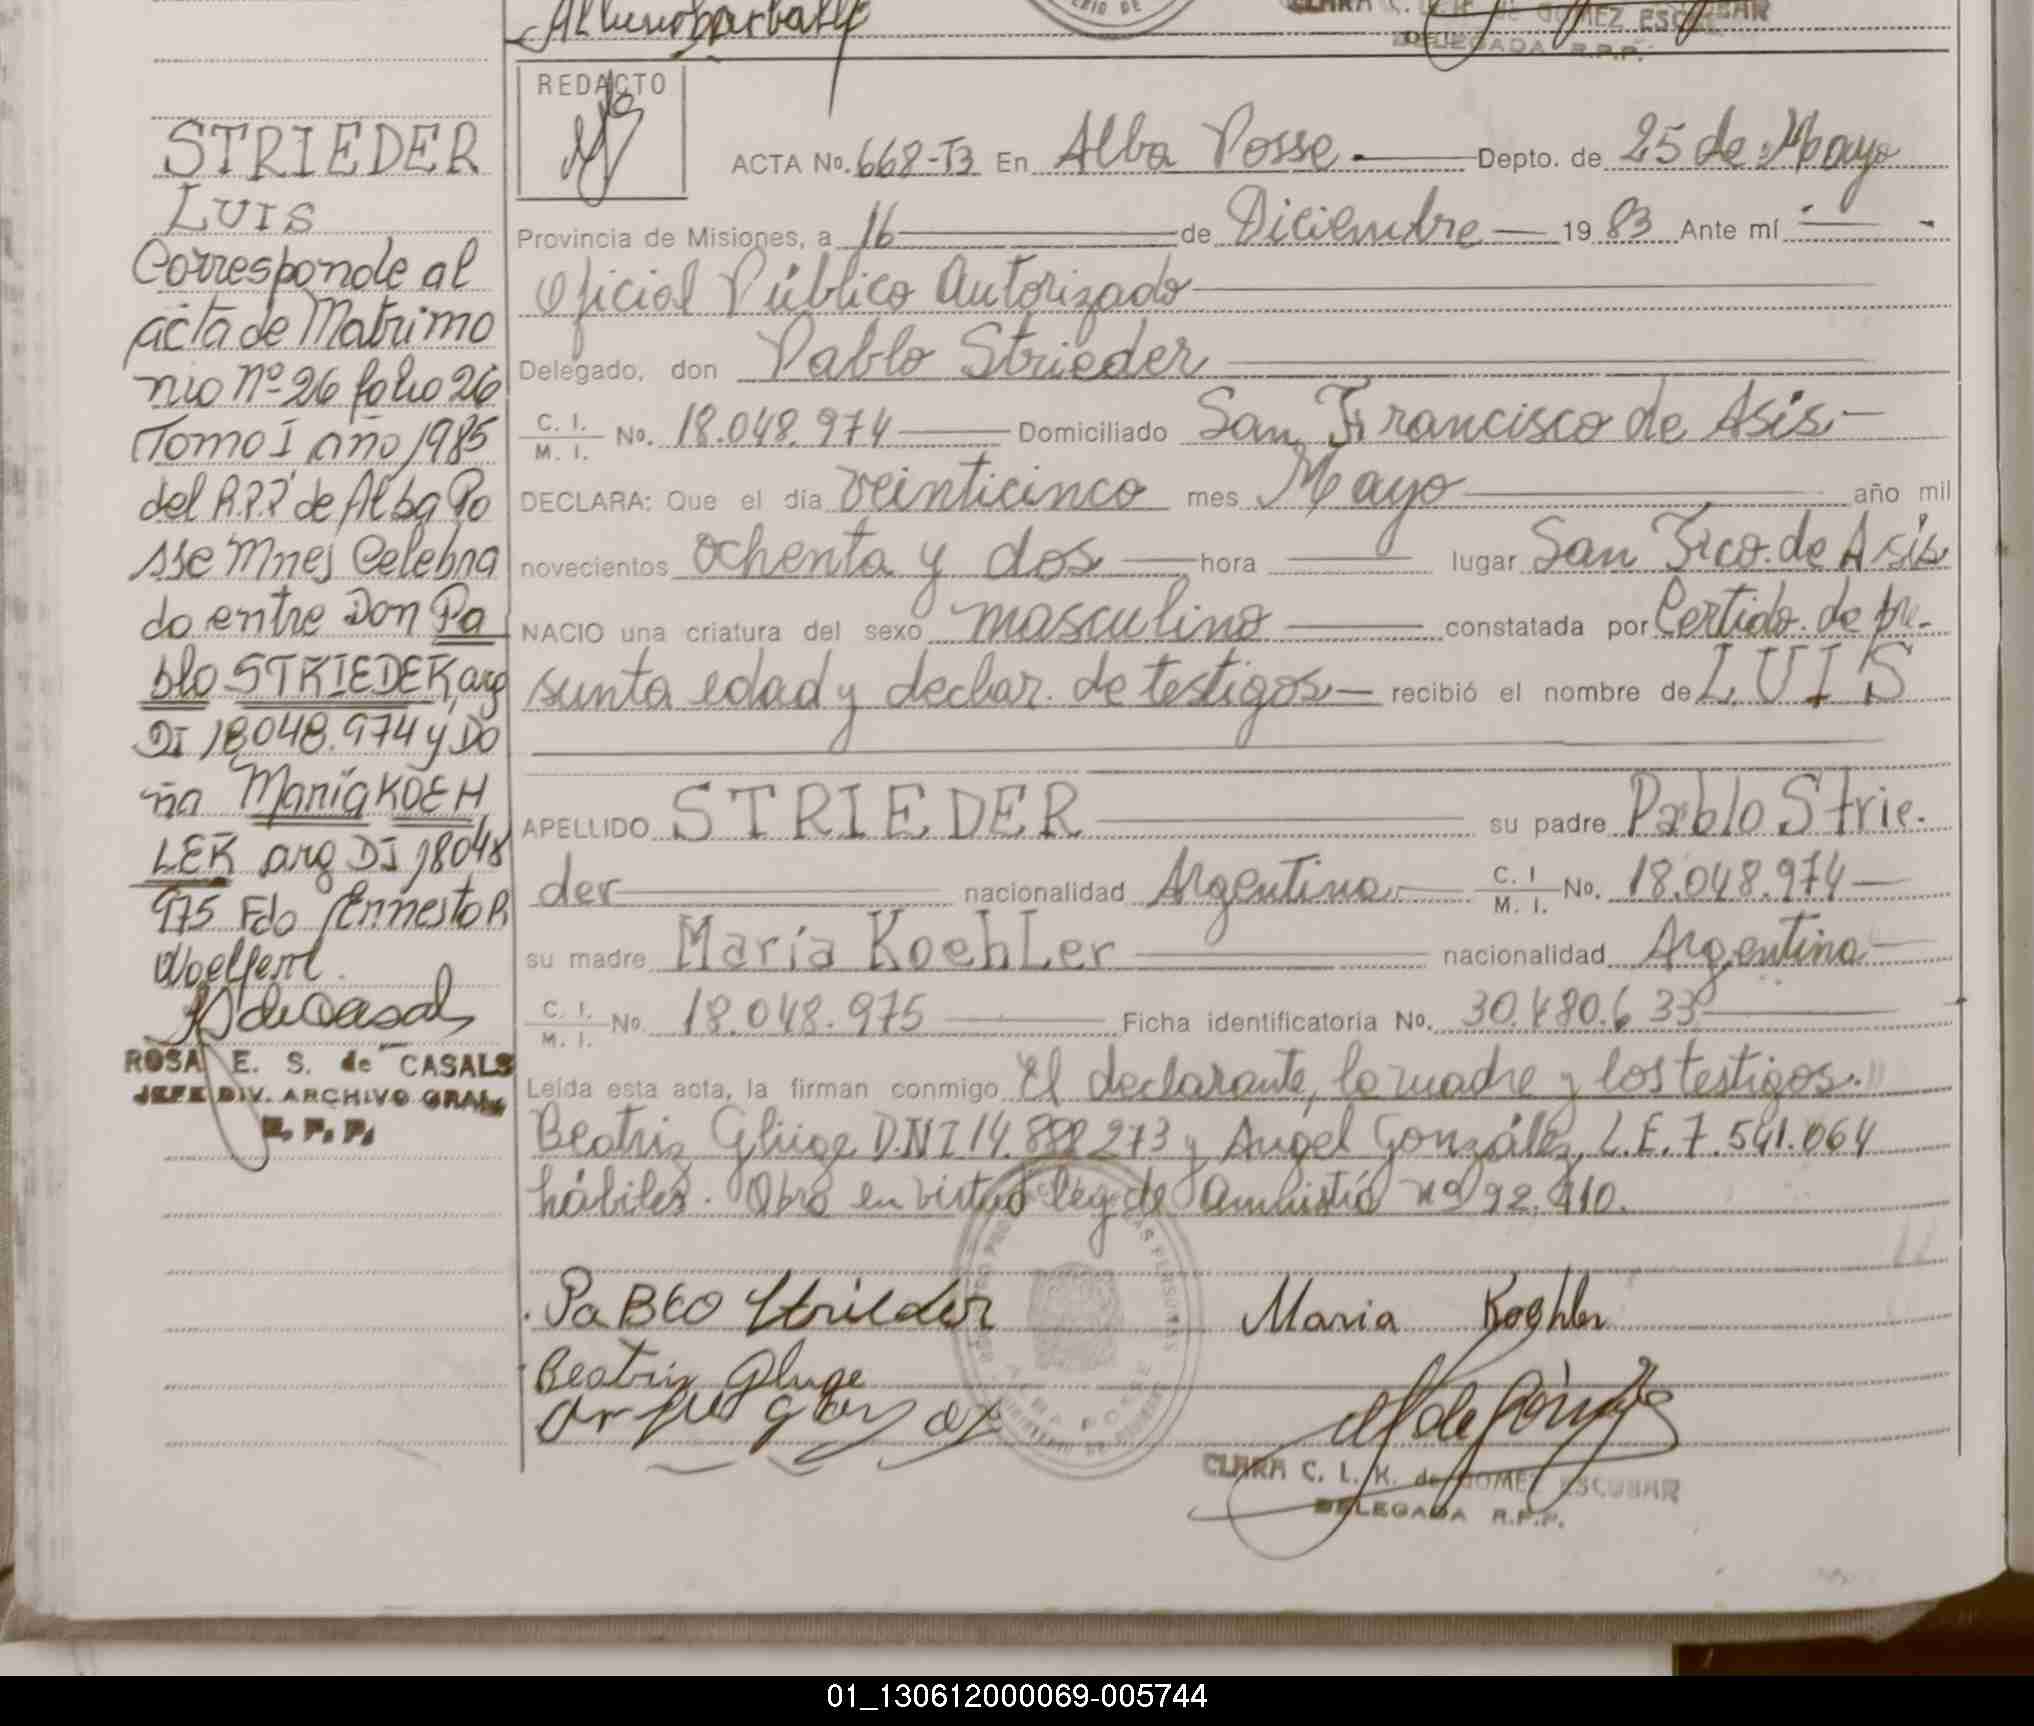 CLARA C. GOMEZ ESCOBAR
DELEGADA R.P.P.
STRIEDER
LUIS
Corresponde al
acta de Matrimo
nio Nº 26 folio 26
Tomo I año 1985
del R.P.P de Alba Po
sse Mnes Celebra
do entre Don Pa
blo STRIEDER, arg
DI 18048.974 y Do
ña María KOEH
LER arg DI 18048
975 Fdo Ernesto R
Woelfert.
de Casals
ROSA E. S. de CASALS
JEFE DIV. ARCHIVO GRAL.
R. P. P.
REDACTO
ACTA No. 668-T3 En Alba Posse. Depto. de 25 de Mayo
Provincia de Misiones, a 16 de Diciembre 19 83 Ante mí
Oficial Público Autorizado
Delegado, don Pablo Strieder
C. I. / M. I. No. 18.048.974 Domiciliado San Francisco de Asis
DECLARA: Que el día veinticinco mes Mayo año mil
novecientos ochenta y dos hora lugar San Fco. de Asis
NACIO una criatura del sexo masculino constatada por Certido. de pre-
sunta edad y declar. de testigos recibió el nombre de LUIS
APELLIDO STRIEDER su padre Pablo Strie-
der nacionalidad Argentina C. I. / M. I. No. 18.048.974
su madre María Koehler nacionalidad Argentina
C. I. / M. I. No. 18.048.975 Ficha identificatoria No. 30.480.633
Leída esta acta, la firman conmigo El declarante, la madre y los testigos.
Beatriz Glüge D.N.I 14. 273 y Angel González, L.E. 7.541.064
hábiles. Obra en virtud ley de Amnistía nº
PaBLO Strieder Maria Koehler
Beatriz Gluge
CLARA C. L. K. de GOMEZ ESCOBAR
DELEGADA R.P.P.
01_130612000069-005744